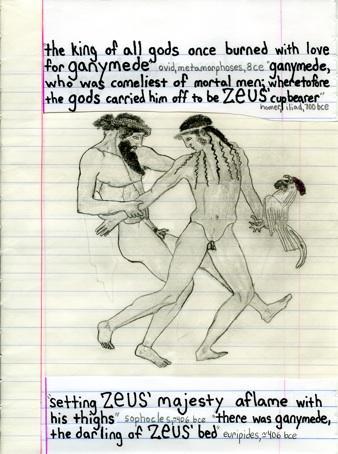 the king of all gods once burned with love
for ganymede" ovid, metamorphoses, 8ce "ganymede,
who was comeliest of mortal men; wheretofore
the gods carried him off to be ZEUS' cupbearer"
homer, iliad, 700 bce
"setting ZEUS' majesty aflame with
his thighs" sophocles, ~406 bce "there was ganymede,
the darling of ZEUS' bed" euripides, ~406 bce